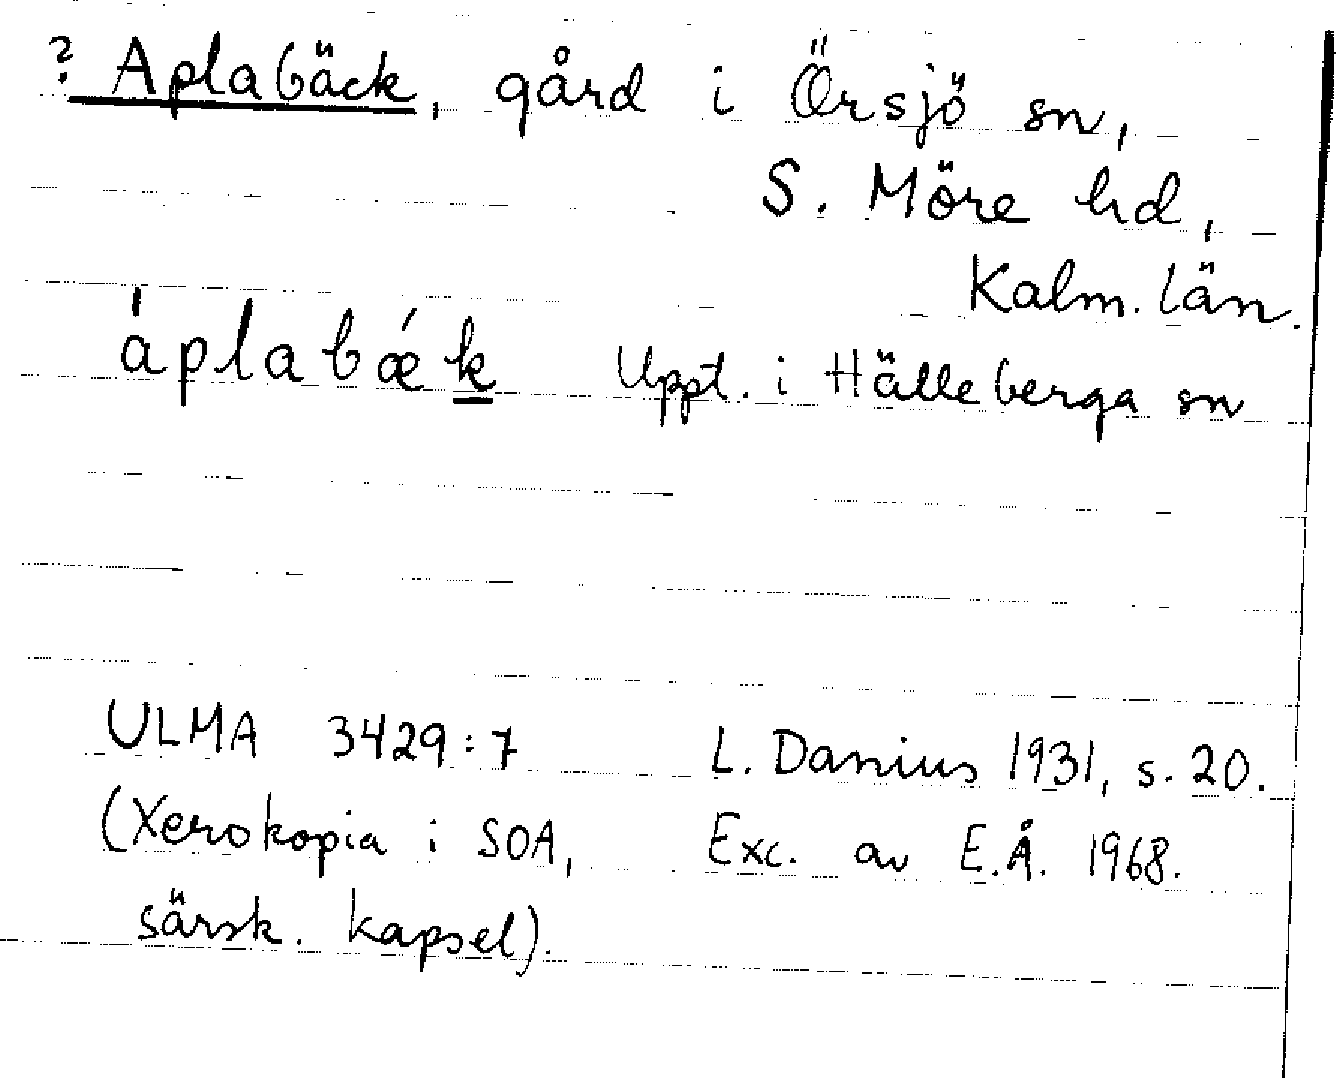 ? Aplabäck, gård i Örsjö sn,
S. Möre hd,
Kalm. län.
áplabǽk Uppt. i Hälleberga sn
ULMA 3429:7 L. Danius 1931, s. 20.
(Xerokopia i SOA, Exc. av E.Å. 1968.
särsk. kapsel).